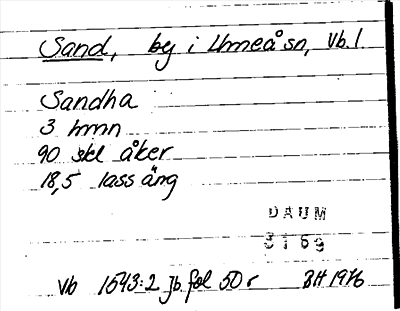 Sand, by i Umeå sn, Vb. l.
Sandha
3 hmn
90 skl åker
18,5 lass äng
DAUM
3169
Vb 1543:2 jb fol 50 r BH 1976